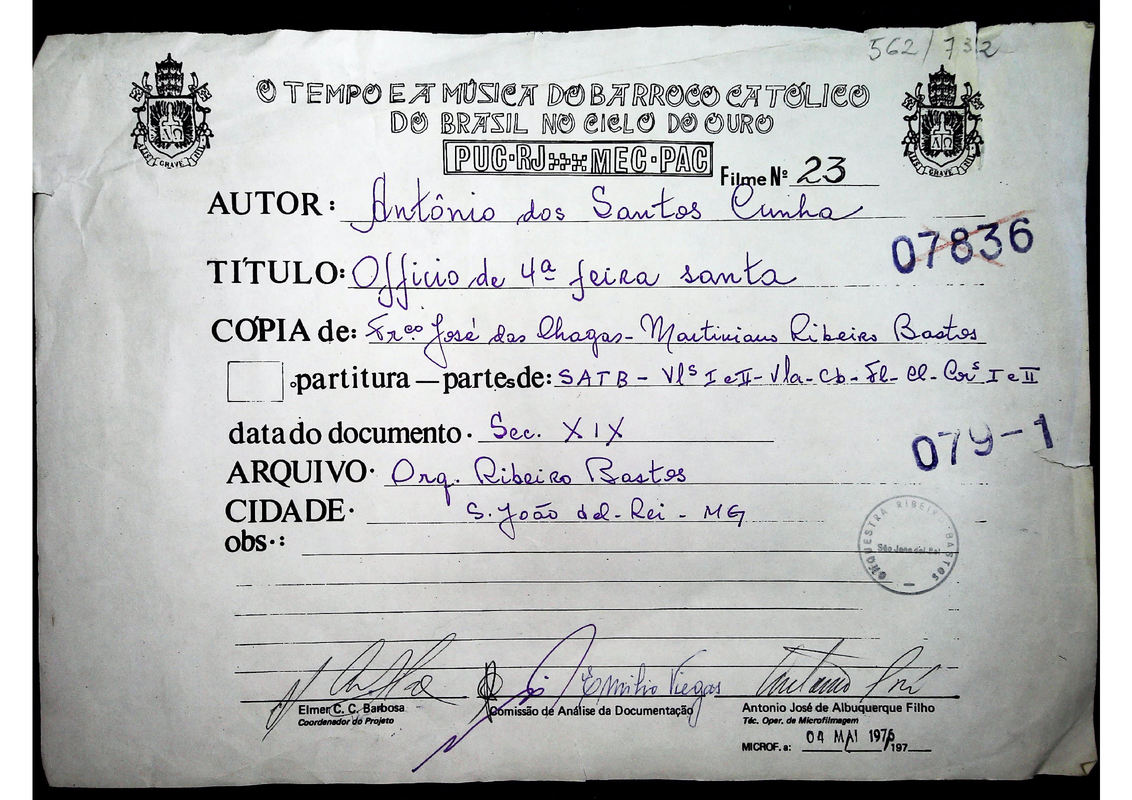 562/732
O TEMPO E A MÚSICA DO BARROCO CATÓLICO
DO BRASIL NO CICLO DO OURO
PUC·RJ MEC·PAC
Filme Nº 23
AUTOR: Antônio dos Santos Cunha
07836
TÍTULO: Officio de 4ª feira santa
CÓPIA de: Frco. José das Chagas - Martiniano Ribeiro Bastos
partitura — partes de: SATB - Vls I e II - Vla - Cb - Fl - Cl - Cors I e II
data do documento · Sec. XIX
079-1
ARQUIVO · Orq. Ribeiro Bastos
CIDADE · S. João del-Rei - MG
obs·:
ORQUESTRA RIBEIRO BASTOS
São Joao del Rei
Emilio Viegas
Elmer C. C. Barbosa
Coordenador do Projeto
Comissão de Análise da Documentação
Antonio José de Albuquerque Filho
Téc. Oper. de Microfilmagem
MICROF. a: 04 MAI 1976 197